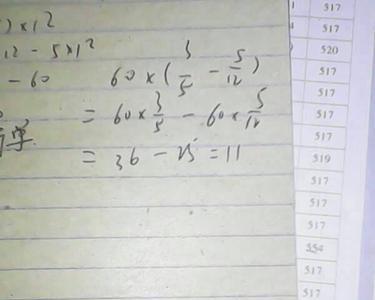 )×12
12 - 5×12
- 60
60×(3/5 - 5/12)
= 60×3/5 - 60×5/12
= 36 - 25 = 11
517
517
520
517
517
517
517
519
517
517
517
554
517
517